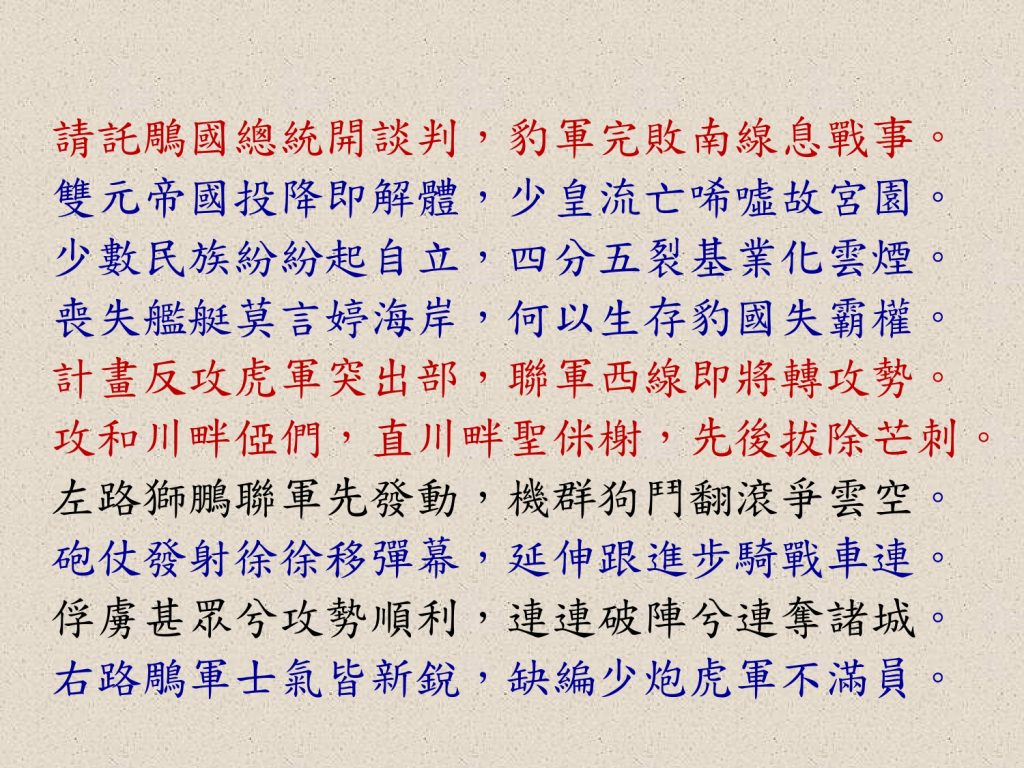 請託鵰國總統開談判，豹軍完敗南線息戰事。
雙元帝國投降即解體，少皇流亡唏噓故宮園。
少數民族紛紛起自立，四分五裂基業化雲煙。
喪失艦艇莫言婷海岸，何以生存豹國失霸權。
計畫反攻虎軍突出部，聯軍西線即將轉攻勢。
攻和川畔俹們，直川畔聖侎榭，先後拔除芒刺。
左路獅鵬聯軍先發動，機群狗鬥翻滾爭雲空。
砲仗發射徐徐移彈幕，延伸跟進步騎戰車連。
俘虜甚眾兮攻勢順利，連連破陣兮連奪諸城。
右路鵰軍士氣皆新銳，缺編少炮虎軍不滿員。